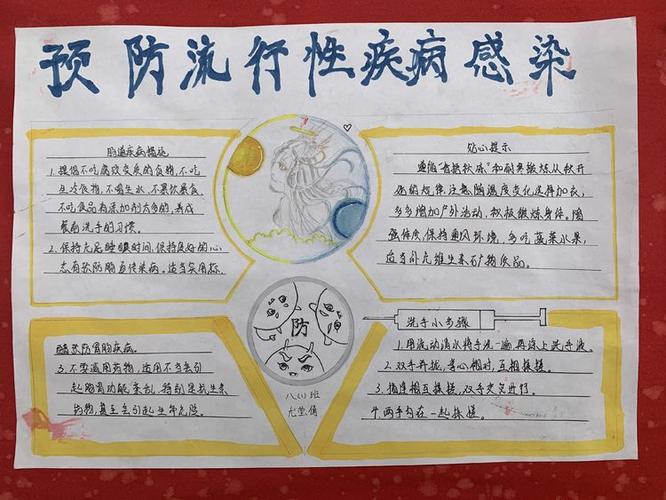 预防流行性疾病感染
肠道疾病措施
1.提倡不吃腐败变质的食物,不吃
生冷食物,不喝生水,不暴饮暴食
不吃食品有添加剂太多的,养成
餐前洗手的习惯。
2.保持充足睡眠时间,保持良好的心
态有效防肠道传染病。适当采用
醋预防胃肠疾病。
3.不要滥用药物,适用不当会引
起肠胃功能紊乱,特别是抗生素
药物,甚至会引起生命危险。
贴心提示
遵循"春捂秋冻"和耐寒锻炼从秋开
始的规律,注意随温度变化选择加衣,
多多增加户外活动,积极锻炼身体,增
强体质,保持通风环境,多吃蔬菜水果,
适当补充维生素矿物质品。
防
八(1)班
洗手小步骤
1.用流动清水将手洗一遍再涂上洗手液。
2.双手并拢,掌心相对,互相揉搓。
3.指缝相互揉搓,双手交叉进行。
4.两手勾在一起揉搓。